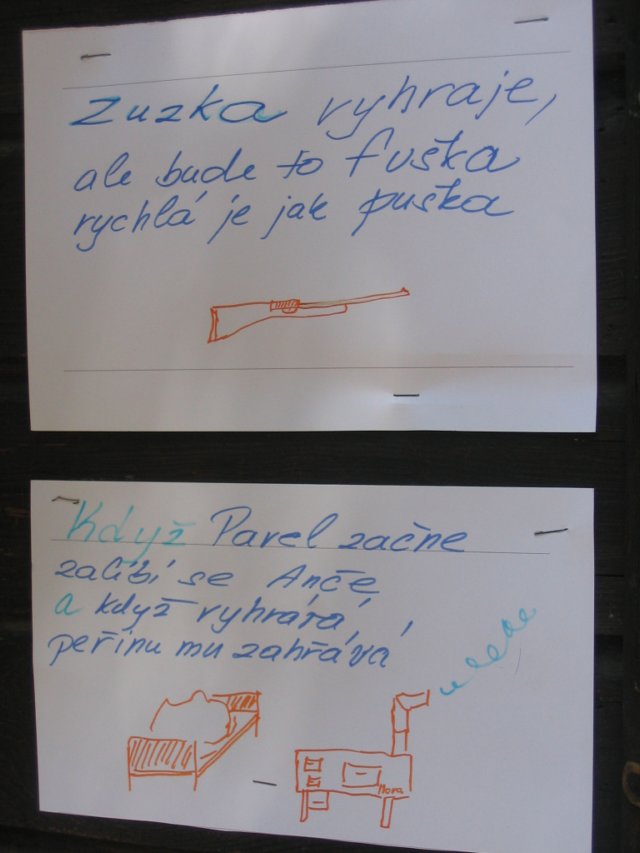 Zuzka vyhraje,
ale bude to fuška
rychlá je jak puška
Když Pavel začne
zalíbí se Anče
a když vyhrává,
peřinu mu zahřává
Mora